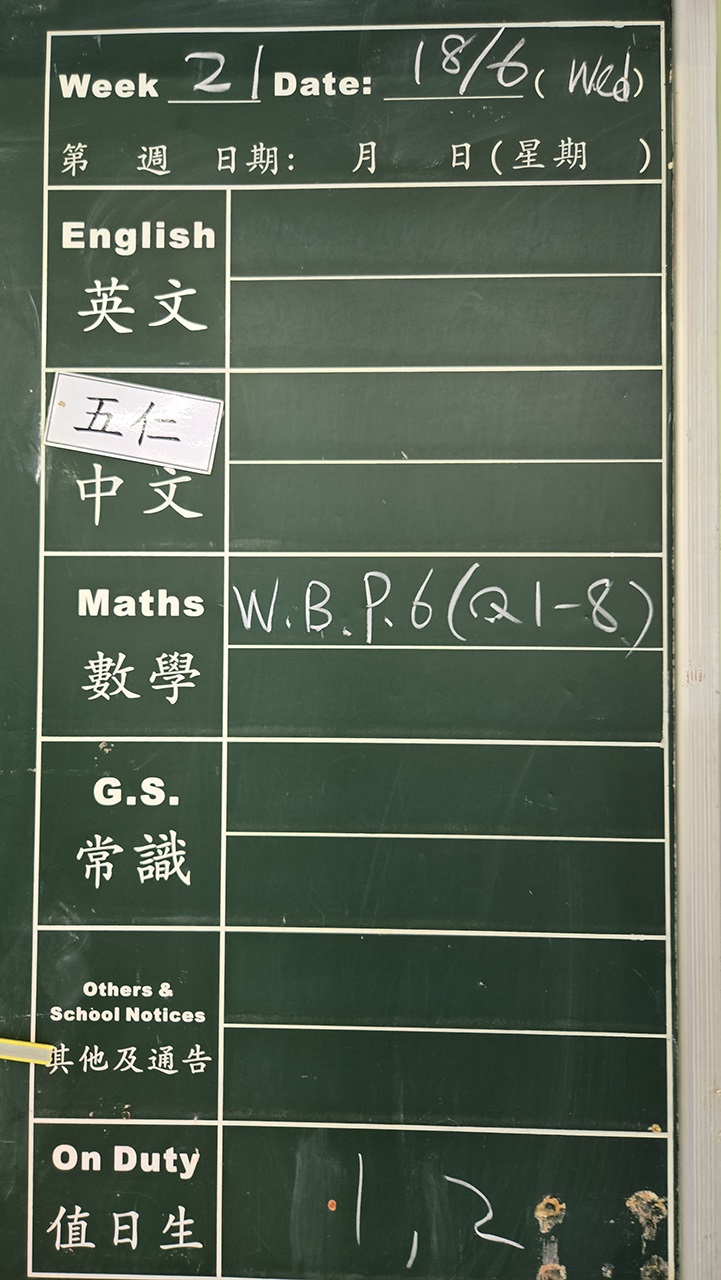 Week 21 Date: 18/6 (Wed)
第 週 日期: 月 日(星期 )
English
英文
五仁
中文
Maths W.B.P.6(Q1-8)
數學
G.S.
常識
Others &
School Notices
其他及通告
On Duty 1,2
值日生